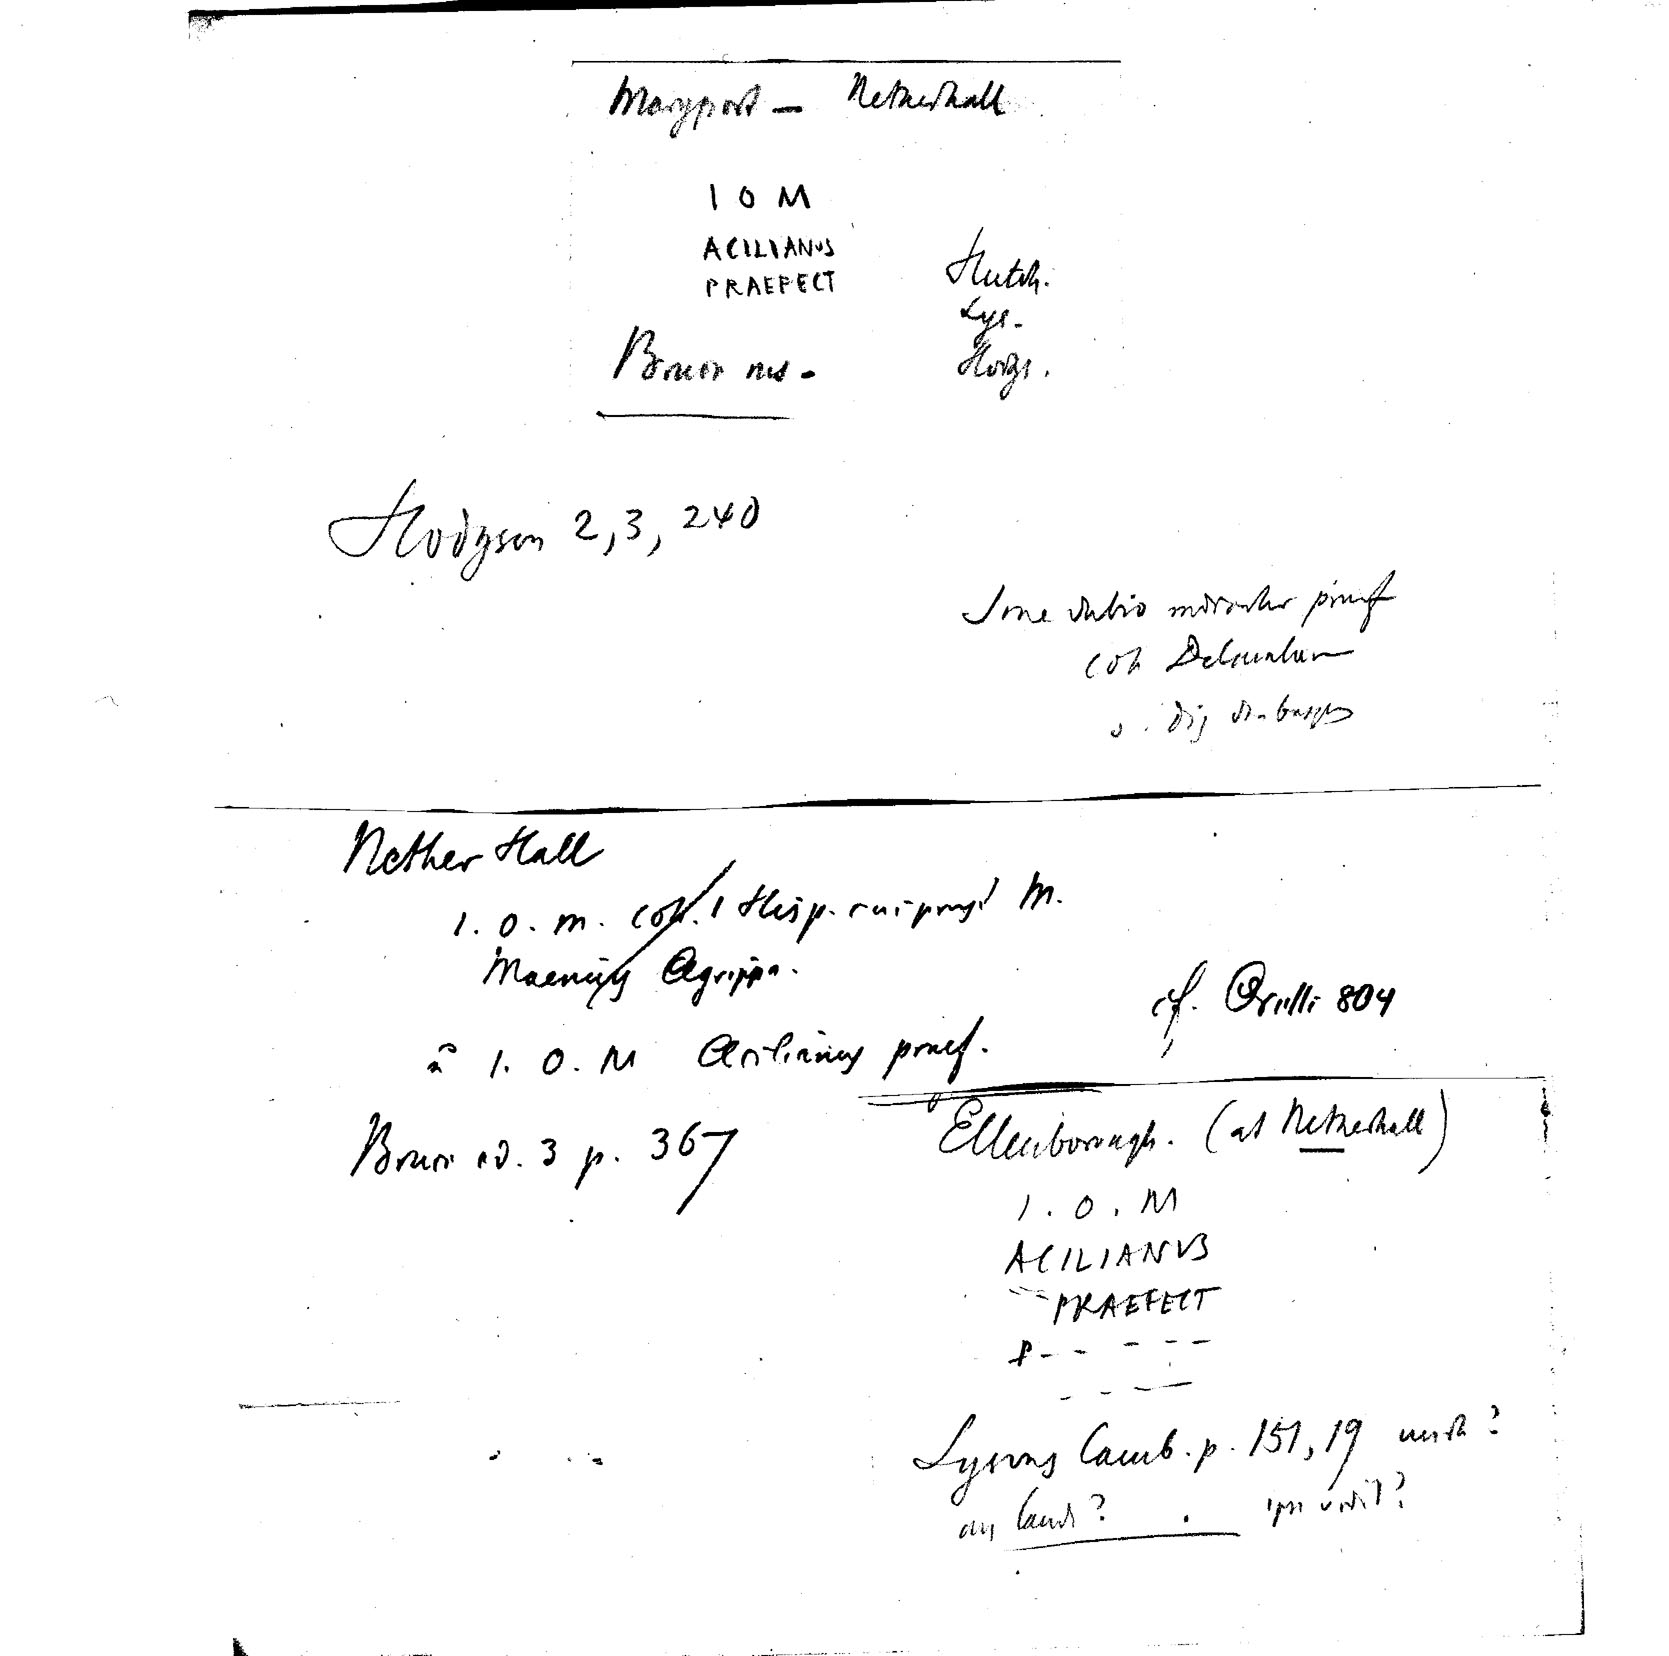 Maryport — Netherhall
I O M
ACILIANUS
PRAEFECT
Hutch.
Lys.
Hodgs.
Bruce ms.
Hodgson 2, 3, 240
sine dubio praef
coh Delmatarum
Nether Hall
I. O. M. coh. I Hisp. cui praest M.
Maenius Agrippa.
I. O. M Acilianus praef.
cf. Orelli 804
Bruce ed. 3 p. 367
Ellenborough. (at Netherhall)
I. O. M
ACILIANVS
PRAEFECT
P - - - - -
- - -
Lysons Camb. p. 151, 19 unde?
ipse vidit?